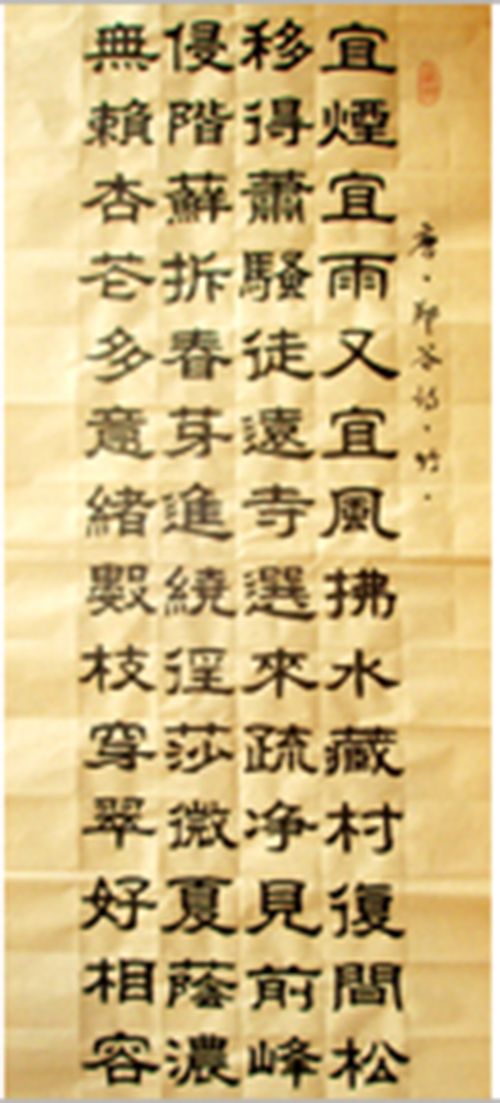 唐·鄭谷詩·竹·
宜煙宜雨又宜風拂水藏村復間松
移得蕭騷徒遠寺選來疏净見前峰
侵階蘚拆春芽進繞徑莎微夏蔭濃
無賴杏花多意緒數枝穿翠好相容